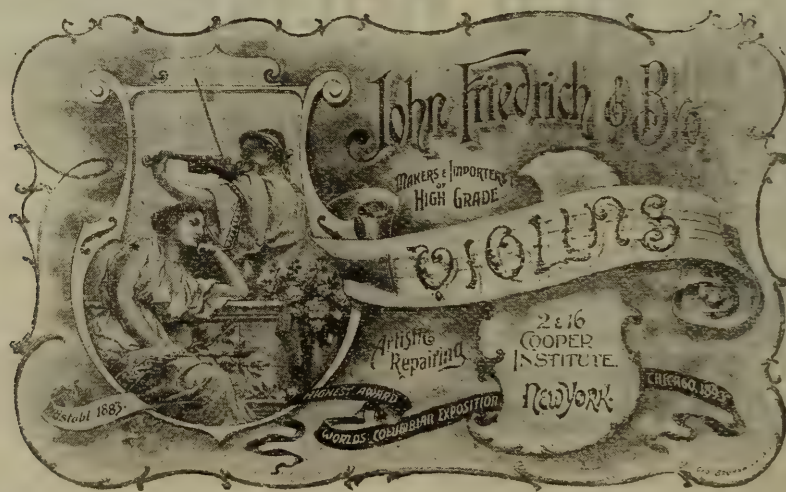 John Friedrich & Bro.
MAKERS & IMPORTERS
OF
HIGH GRADE
VIOLINS
Artistic
Repairing
2 & 16
COOPER
INSTITUTE.
NEW YORK.
Establ 1883.
HIGHEST AWARD
WORLDS. COLUMBIAN EXPOSITION
CHICAGO, 1893.